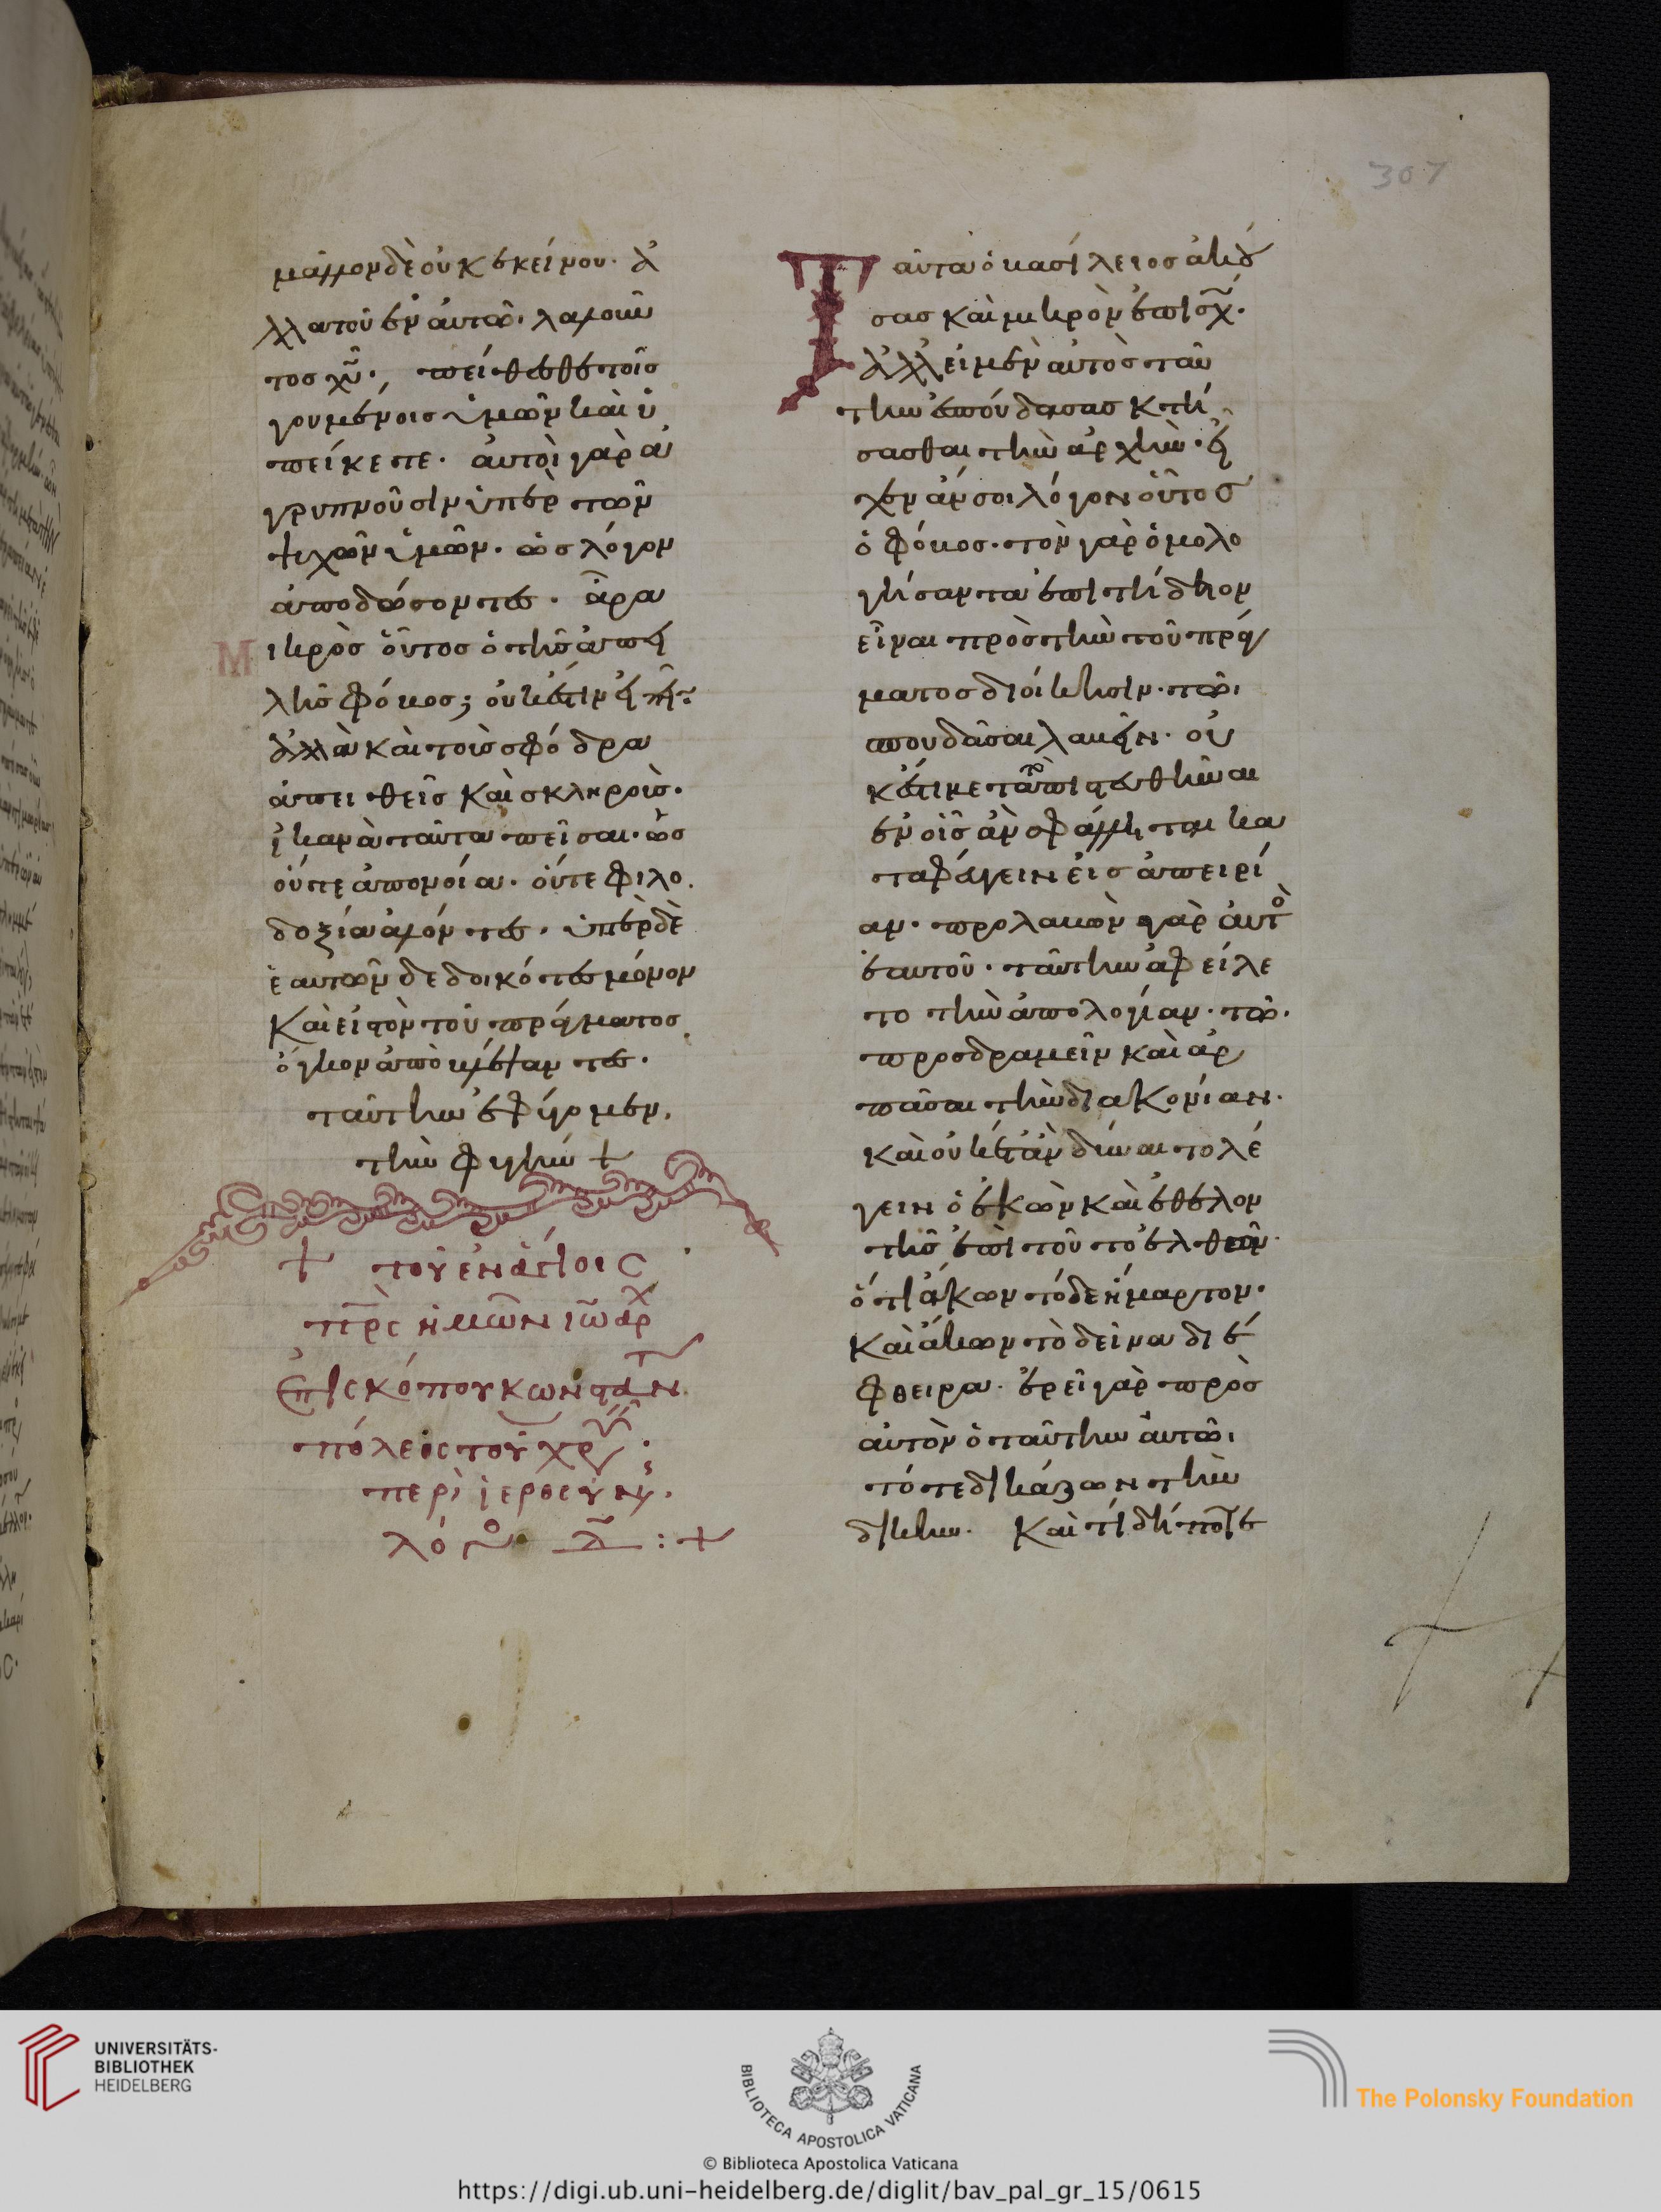 307
μᾶλλον δὲ οὐκ ἐκείνου. ἀ
λλὰ τοῦ ἐν αὐτῶ. λαλοῦν
τος χῦ. πείθεσθε τοῖς
γουμένοις ὑμῶν καὶ ὑ
πείκετε. αὐτοὶ γὰρ ἀ
γρυπνοῦσιν ὑπὲρ τῶν
ψυχῶν ὑμῶν. ὡς λόγον
ἀποδώσοντες. ἆρα
Μ ικρὸς οὗτος ὁ τῆς ἀπει
λῆς φόβος; οὐκ ἔστιν εἰπεῖν.
ἀλλὰ καὶ τοῖς σφόδρα
ἀπειθεῖς καὶ σκληροῖς.
ἱκανὰ ταῦτα πεῖσαι. ὡς
οὔτε ἀπονοία. οὔτε φιλο
δοξία ἁλόντες. ὑπὲρ δὲ
ἑαυτῶν δεδοικότες μόνον
καὶ εἰς τὸν τοῦ πράγματος
ὄγκον ἀποβλέψαντες.
ταύτην ἐφύγομεν.
τὴν φυγήν +
+ τοῦ ἐν ἁγίοις
πρς ἡμῶν ιω αρχ
ἐπισκόπου κωνσταντ
πόλεως τοῦ χρυ
περὶ ἱερωσύνης.
λόγος δ : +
Ταῦτα ὁ βασίλειος ἀκού
σας καὶ μικρὸν ἐπισχ.
ἀλλ' εἰ μὲν αὐτὸς ταύ
την ἐσπούδασας κτή
σασθαι τὴν ἀρχὴν. εἶ
χεν ἄν σοι λόγον οὗτος
ὁ φόβος. τὸν γὰρ ὁμολο
γήσαντα ἐπιτήδειον
εἶναι πρὸς τὴν τοῦ πράγ
ματος διοίκησιν. τῶ
σπουδάσαι λαβεῖν. οὐ
κ ἔστι μετὰ τὸ πιστευθῆναι
ἐν οἷς ἂν σφάλληται κα
ταφυγεῖν εἰς ἀπειρί
αν. προλαβὼν γὰρ αὐτὸς
ἑαυτοῦ. ταύτην ἀφείλε
το τὴν ἀπολογίαν. τῶ
προσδραμεῖν καὶ ἁρ
πάσαι τὴν διακονίαν.
καὶ οὐκέτ' ἂν δύναιτο λέ
γειν ὁ ἑκὼν καὶ ἐθελον
τὴς ἐπὶ τοῦτο ἐλθών.
ὅτι ἄκων τόδε ἥμαρτον.
καὶ ἄκων τὸ δεῖνα διέ
φθειρα. ἐρεῖ γὰρ πρὸς
αὐτὸν ὁ ταύτην αὐτῶ
τότε δικάζων τὴν
δίκην. Καὶ τί δήποτε
UNIVERSITÄTS-
BIBLIOTHEK
HEIDELBERG
BIBLIOTECA APOSTOLICA VATICANA
© Biblioteca Apostolica Vaticana
The Polonsky Foundation
https://digi.ub.uni-heidelberg.de/diglit/bav_pal_gr_15/0615